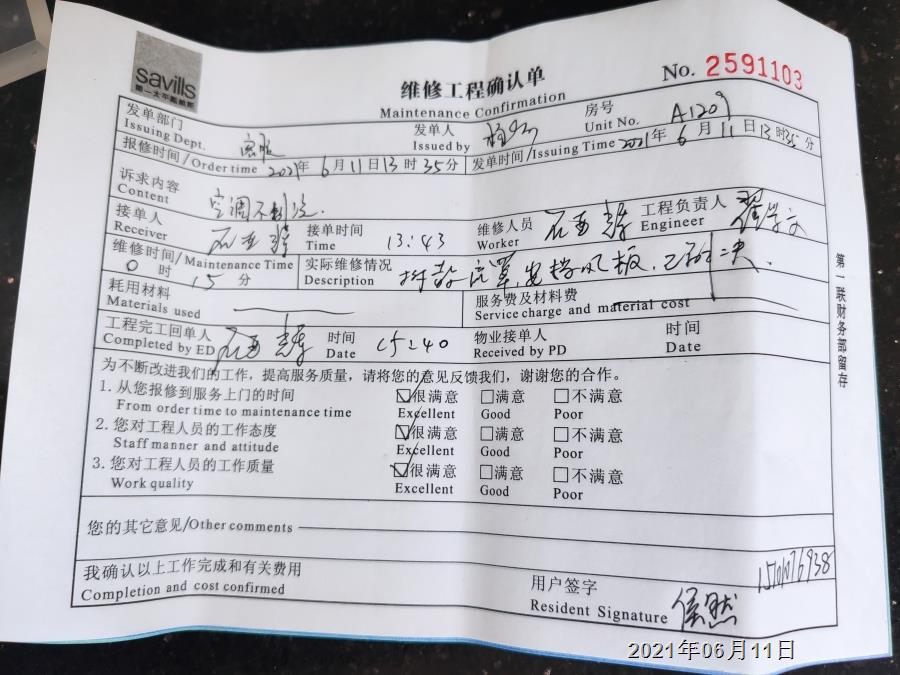 savills
第一太平戴维斯
维修工程确认单
Maintenance Confirmation
No. 2591103
发单部门 Issuing Dept. 客服 发单人 Issued by 房号 Unit No. A1209
报修时间/Order time 2021年6月11日13时35分 发单时间/Issuing Time 2021年6月11日13时35分
诉求内容 Content 空调不制冷.
接单人 Receiver 石亚辉 接单时间 Time 13:43 维修人员 Worker 石亚辉 工程负责人 Engineer
维修时间/Maintenance Time 0时15分 实际维修情况 Description 风板,已解决.
耗用材料 Materials used 服务费及材料费 Service charge and material cost
工程完工回单人 Completed by ED 石亚辉 时间 Date 15:40 物业接单人 Received by PD 时间 Date
为不断改进我们的工作,提高服务质量,请将您的意见反馈我们,谢谢您的合作。
1. 从您报修到服务上门的时间 ☑很满意 □满意 □不满意
From order time to maintenance time Excellent Good Poor
2. 您对工程人员的工作态度 ☑很满意 □满意 □不满意
Staff manner and attitude Excellent Good Poor
3. 您对工程人员的工作质量 ☑很满意 □满意 □不满意
Work quality Excellent Good Poor
您的其它意见/Other comments
我确认以上工作完成和有关费用
Completion and cost confirmed
用户签字
Resident Signature 侯
第一联财务部留存
2021年06月11日